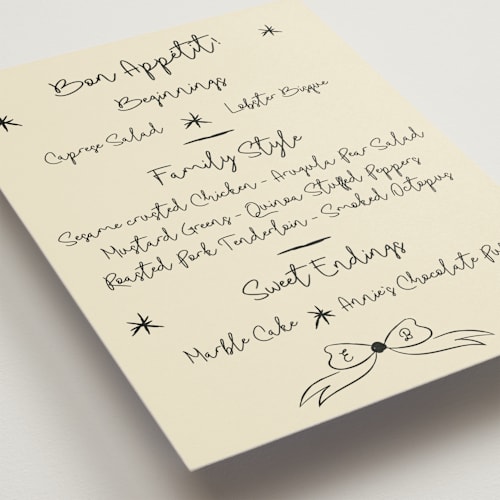 Bon Appétit!
Beginnings
Caprese Salad Lobster Bisque
Family Style
Sesame crusted Chicken - Arugula Pear Salad
Mustard Greens - Quinoa Stuffed Peppers
Roasted Pork Tenderloin - Smoked Octopus
Sweet Endings
Marble Cake Annie's Chocolate
E B